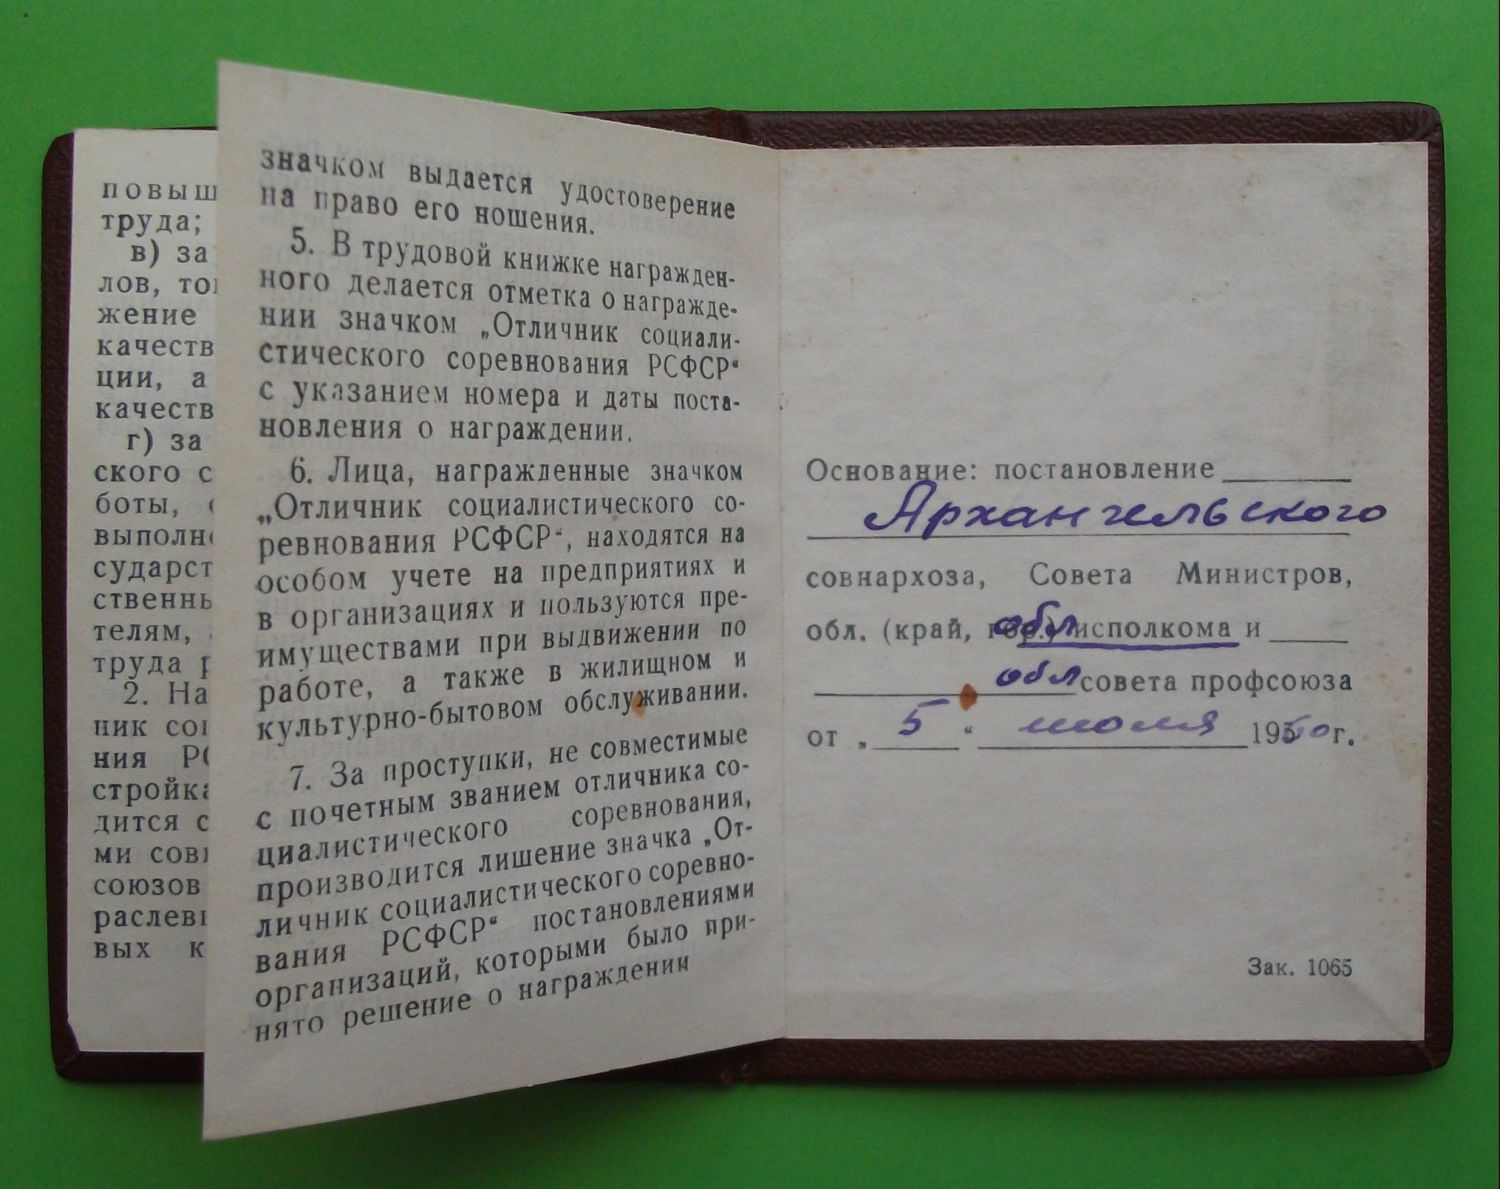 повыш
труда;
в) за
лов, то
жение
качеств
ции, а
качеств
г) за
ского с
боты,
выполн
сударст
ственнь
телям,
труда р
2. На
ник со
ния Р
стройка
дится с
ми сов
союзов
раслев
вых к
значком выдается удостоверение
на право его ношения.
5. В трудовой книжке награжден-
ного делается отметка о награжде-
нии значком „Отличник социали-
стического соревнования РСФСР“
с указанием номера и даты поста-
новления о награждении.
6. Лица, награжденные значком
„Отличник социалистического со-
ревнования РСФСР“, находятся на
особом учете на предприятиях и
в организациях и пользуются пре-
имуществами при выдвижении по
работе, а также в жилищном и
культурно-бытовом обслуживании.
7. За проступки, не совместимые
с почетным званием отличника со-
циалистического соревнования,
производится лишение значка „От-
личник социалистического соревно-
вания РСФСР“ постановлениями
организаций, которыми было при-
нято решение о награждении
Основание: постановление
Архангельского
совнархоза, Совета Министров,
обл. (край, гор.) обл исполкома и
обл совета профсоюза
от „ 5 “ июля 1960 г.
Зак. 1065